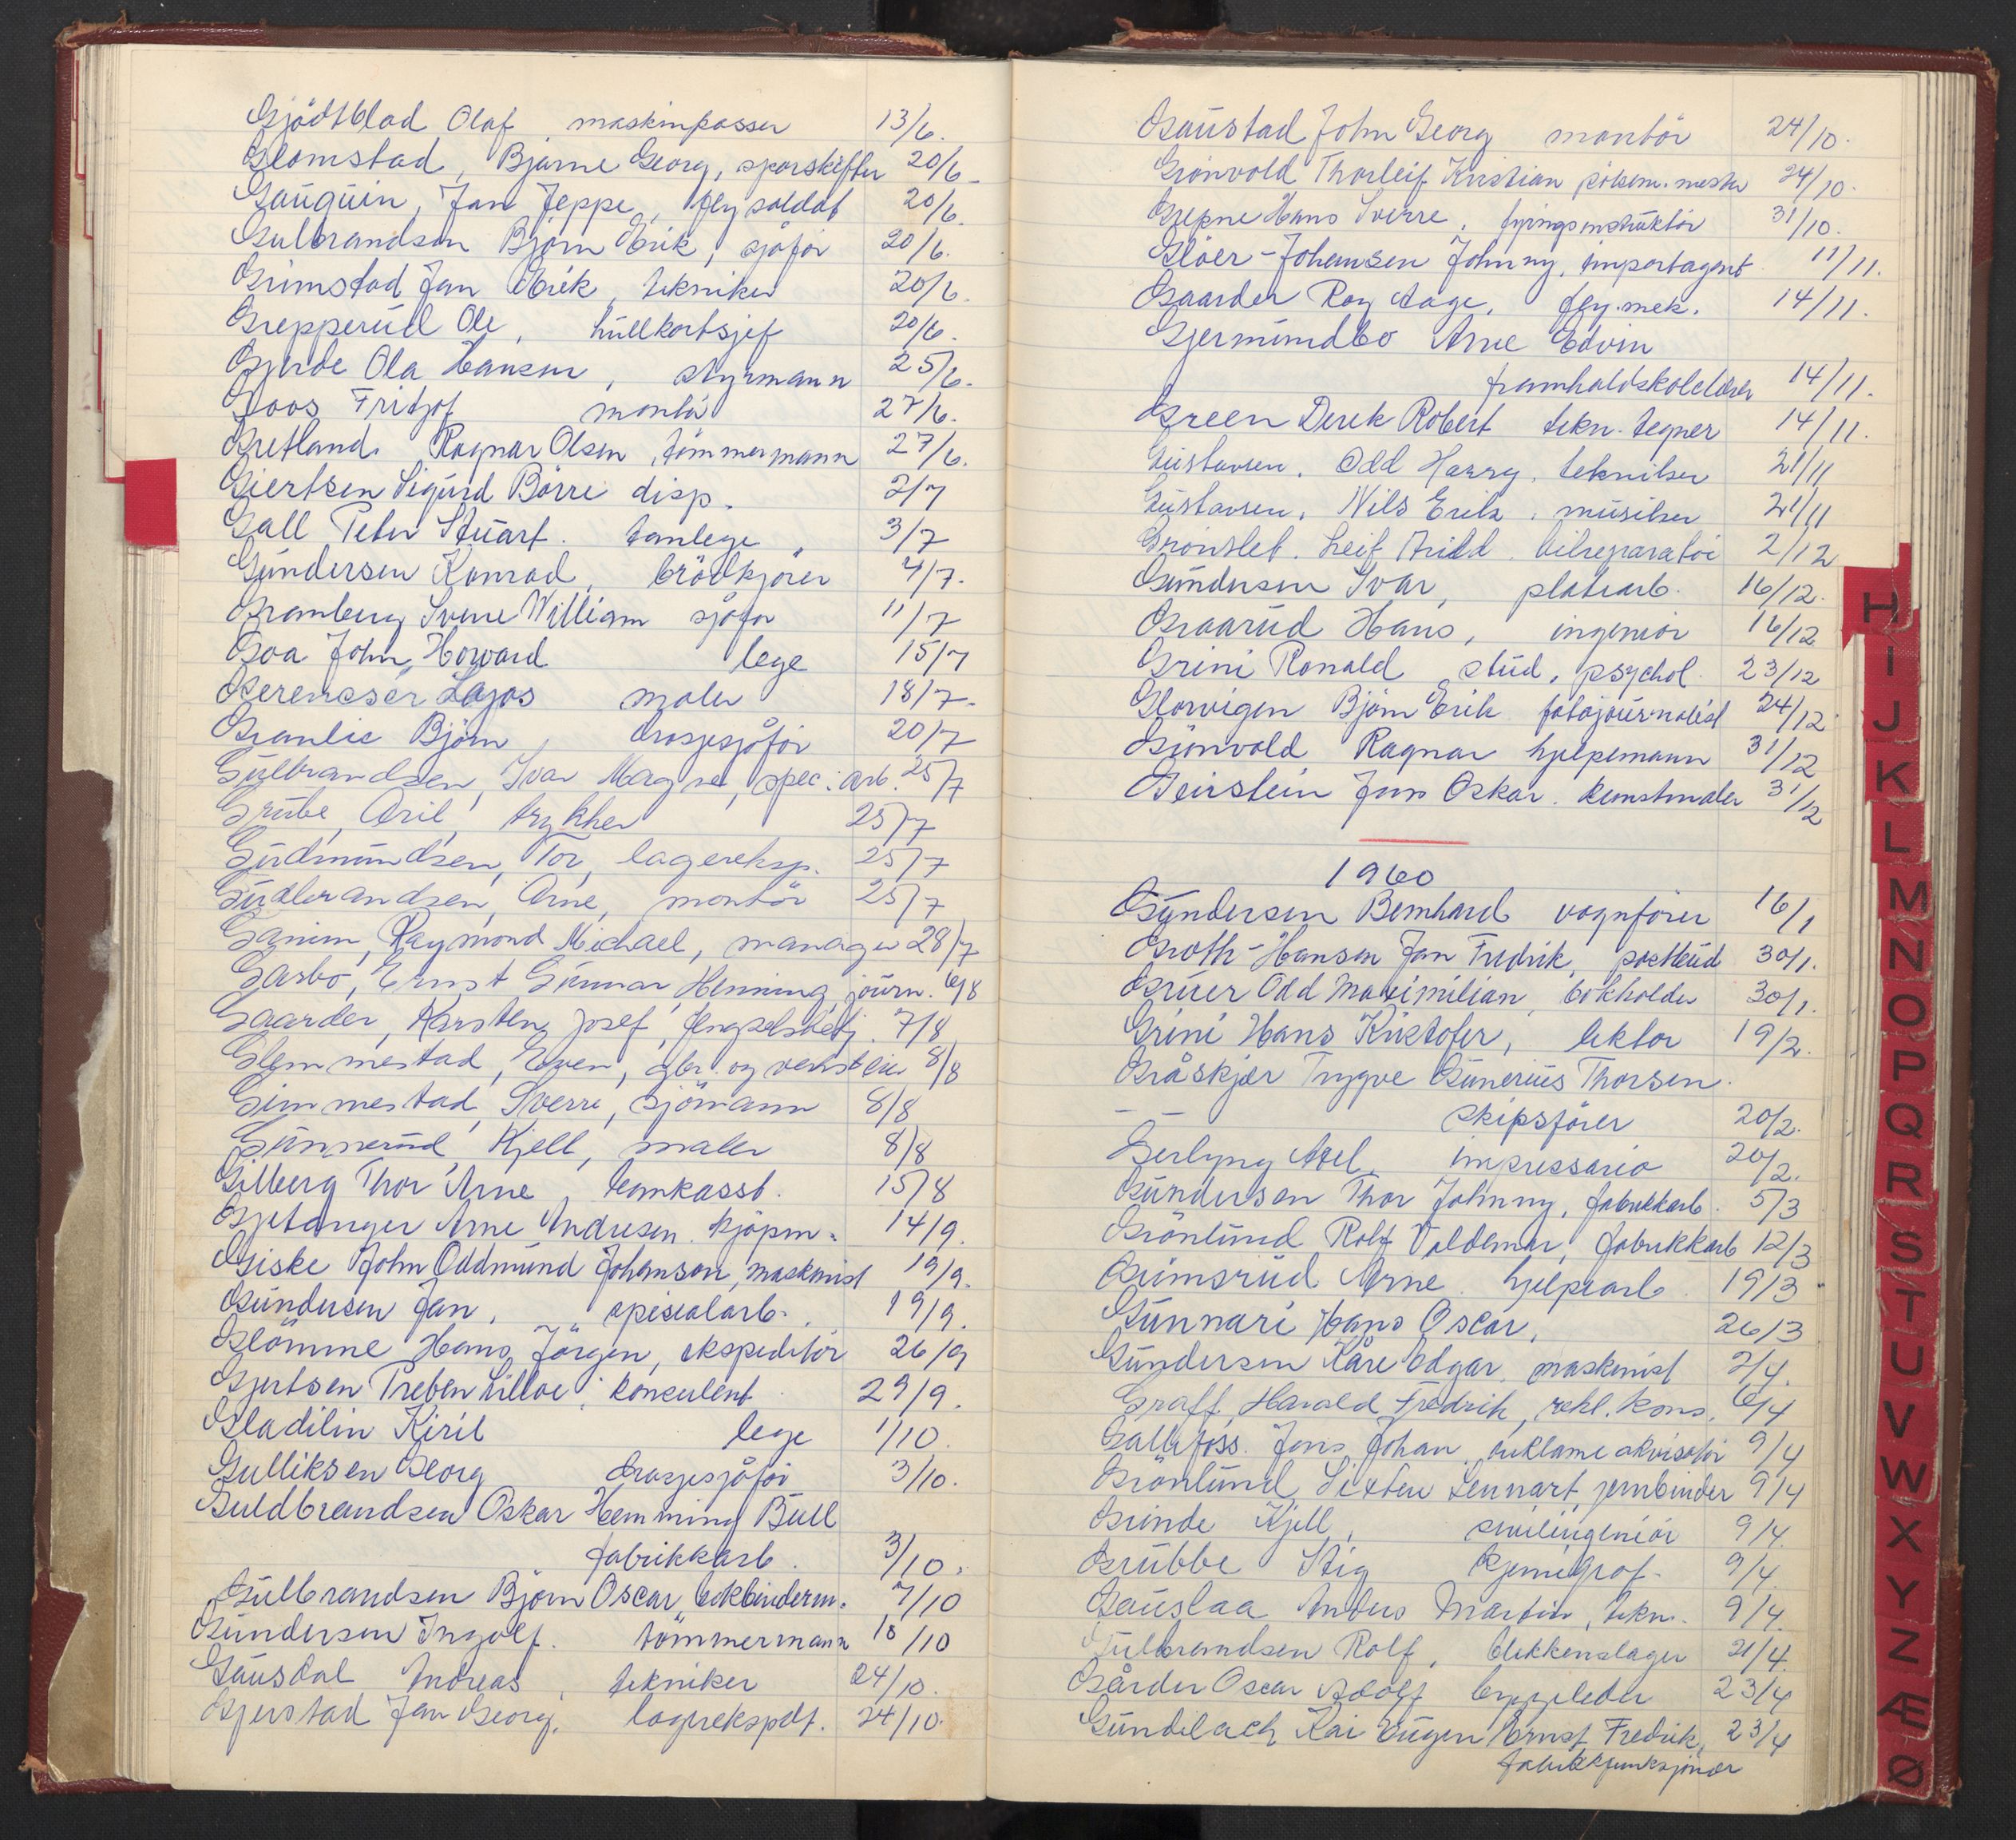 Gjödtblad Olaf, maskinpasser 13/6.
Glomstad, Bjarne Georg, sporskifter 20/6
Gauguin, Jan Jeppe, flysoldat 20/6
Gulbrandsen Bjørn Erik, sjåfør 20/6.
Grimstad Jan Erik, tekniker 20/6.
Grepperud Ole, hullkortsjef 20/6.
Gjerde Ola Hansen, styrmann 25/6.
Goos Fritjof montör 27/6.
Gretland Ragnar Olsen, tömmermann 27/6.
Giertsen Sigurd Börre disp. 2/7
Gall Peter Stuart. tanlege 3/7
Gundersen Konrad, brödkjörer 4/7.
Gramberg Sverre William sjåfør 11/7
Goa John Howard lege 15/7
Gerencser Lajos maler 18/7.
Granlie Björn, drosjesjåför 20/7
Gulbrandsen, Ivar Magne, spec. arb. 25/7
Grube, Aril, trykker 25/7
Gudmundsen, Tor, lagereksp. 25/7
Gudbrandsen, Arne, montör 25/7
Ganim, Raymond Michael, manager 28/7
Garbo, Ernst Gunnar Henning, journ. 6/8
Gaarder, Karsten Josef, fengselsbetj. 7/8
Glemmestad, Even, gbr. og verksteier 8/8
Gimmestad, Sverre, sjömann 8/8
Gunnerud, Kjell, maler 8/8
Gilberg Thor Arne, bankasst. 15/8
Gjetanger Arne Andresen. kjöpm. 14/9.
Giske John Oddmund Johansen, maskinist 19/9.
Gundersen Jan, spisialarb. 19/9.
Glömme Hans Jörgen, ekspeditör 26/9
Gjertsen Preben Lilloe, konsulent 29/9.
Gladilin Kiril lege 1/10.
Gulliksen Georg drosjesjåför 3/10.
Guldbrandsen Oskar Hemming Bull
fabrikkarb. 3/10.
Gulbrandsen Bjørn Oscar bokbinderm. 7/10
Gundersen Ingolf. tömmermann 18/10
Gausdal Andreas, tekniker 24/10.
Gjerstad Jan Georg, lagerekspdt. 24/10.
Gaustad John Georg montör 24/10.
Grönvold Thorleif Kristian mester 24/10.
Grepne Hans Sverre, fyringsinstruktör 31/10.
Glöer-Johansen Johnny, importagent 11/11.
Gaarder Roy Aage, fly.mek. 14/11.
Gjermundbo Arne Edvin
framhaldskolelærer 14/11.
Green Derek Robert tekn. tegner 14/11.
Gustavsen, Odd Harry, tekniker 21/11
Gustavsen, Nils Erik, musiker 21/11
Grönslet. Leif Arild. bilreparatör 2/12
Gundersen Ivar, platearb. 16/12.
Graarud Hans, ingeniör 16/12
Grini Ronald stud. psychol. 23/12
Glorvigen Bjørn Erik fotojournalist 24/12
Grönvold Ragnar hjelpemann 31/12
Geirstein Jens Oskar. kunstmaler 31/12
1960
Gundersen Bernhard vognförer 16/1
Groth-Hansen Jan Fredrik, postbud 30/1.
Gruer Odd Maximilian, bokholder 30/1.
Grini Hans Kristofer, lektor 19/2.
Gråskjær Trygve Gunerius Thorsen.
skipsförer 20/2.
Gerlyng Axel, impressario 20/2.
Gundersen Thor Johnny, fabrikkarb. 5/3
Grönlund Rolf Valdemar, fabrikkarb 12/3
Grimsrud Arne hjelpearb. 19/3
Gunnari Hans Oscar, 26/3
Gundersen Kåre Edgar, maskinist 2/4.
Graff, Harald Fredrik, rekl. kons. 6/4
Gallefoss. Jens Johan, reklame akvisitör 9/4
Grönlund Sixten Lennart, jernbinder 9/4
Grinde Kjell, sivilingeniör 9/4.
Grubbe Stig kjemigraf 9/4.
Gauslaa Anders Martin, tekn. 9/4.
Gulbrandsen Rolf, blikkenslager 21/4.
Gårder Oscar Adolf byggeleder 23/4
Gundelach Kai Eugen Ernst Fredrik, 23/4
fabrikkfunksjonær
H
I
J
K
L
M
N
O
P
Q
R
S
T
U
V
W
X
Y
Z
Æ
Ø